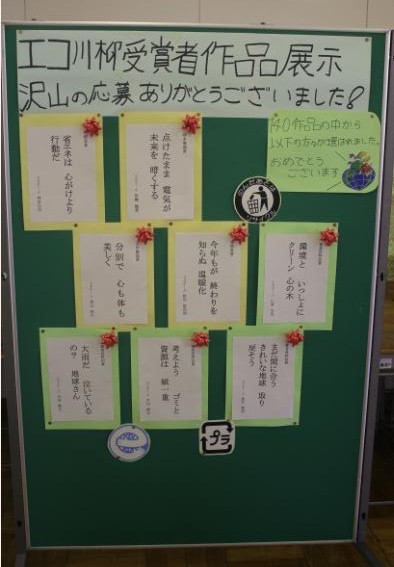 エコ川柳受賞者作品展示
沢山の応募ありがとうございました!
40作品の中から
以下の方々が選ばれました。
おめでとう
ございます
点けたまま 電気が
未来を 暗くする
省エネは 心がけより
行動だ
環境と いっしょに
クリーン 心の木
今年もが 終わりを
知らぬ 温暖化
分別で 心も体も
美しく
まだ間に合う
きれいな地球 取り
戻そう
考えよう ゴミと
資源は 紙一重
大雨だ 泣いている
の? 地球さん
プラ